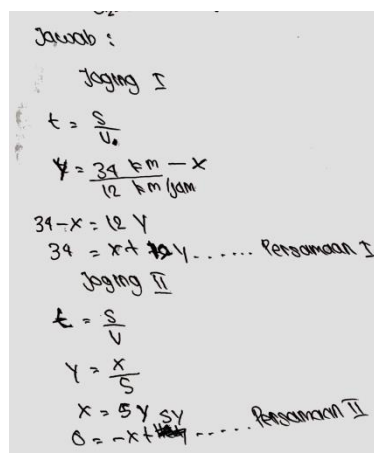 Jawab :
Joging I
t = S/V.
y = 34 km - x / 12 km/jam
34-x = 12 y
34 = x + 12y ...... Persamaan I
Joging II
t = S/V
y = x/5
x = 5y
0 = -x + 5y ..... Persamaan II